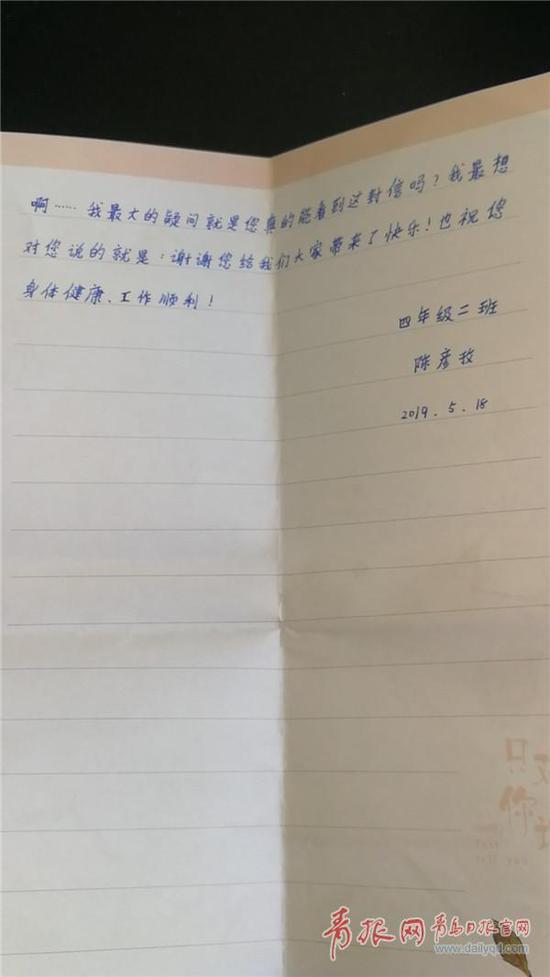 啊……我最大的疑问就是您真的能看到这封信吗？我最想
对您说的就是：谢谢您给我们大家带来了快乐！也祝您
身体健康、工作顺利！
四年级二班
陈彦玫
2019.5.18
只
你
青报网 青岛日报官网
www.dailyqd.com